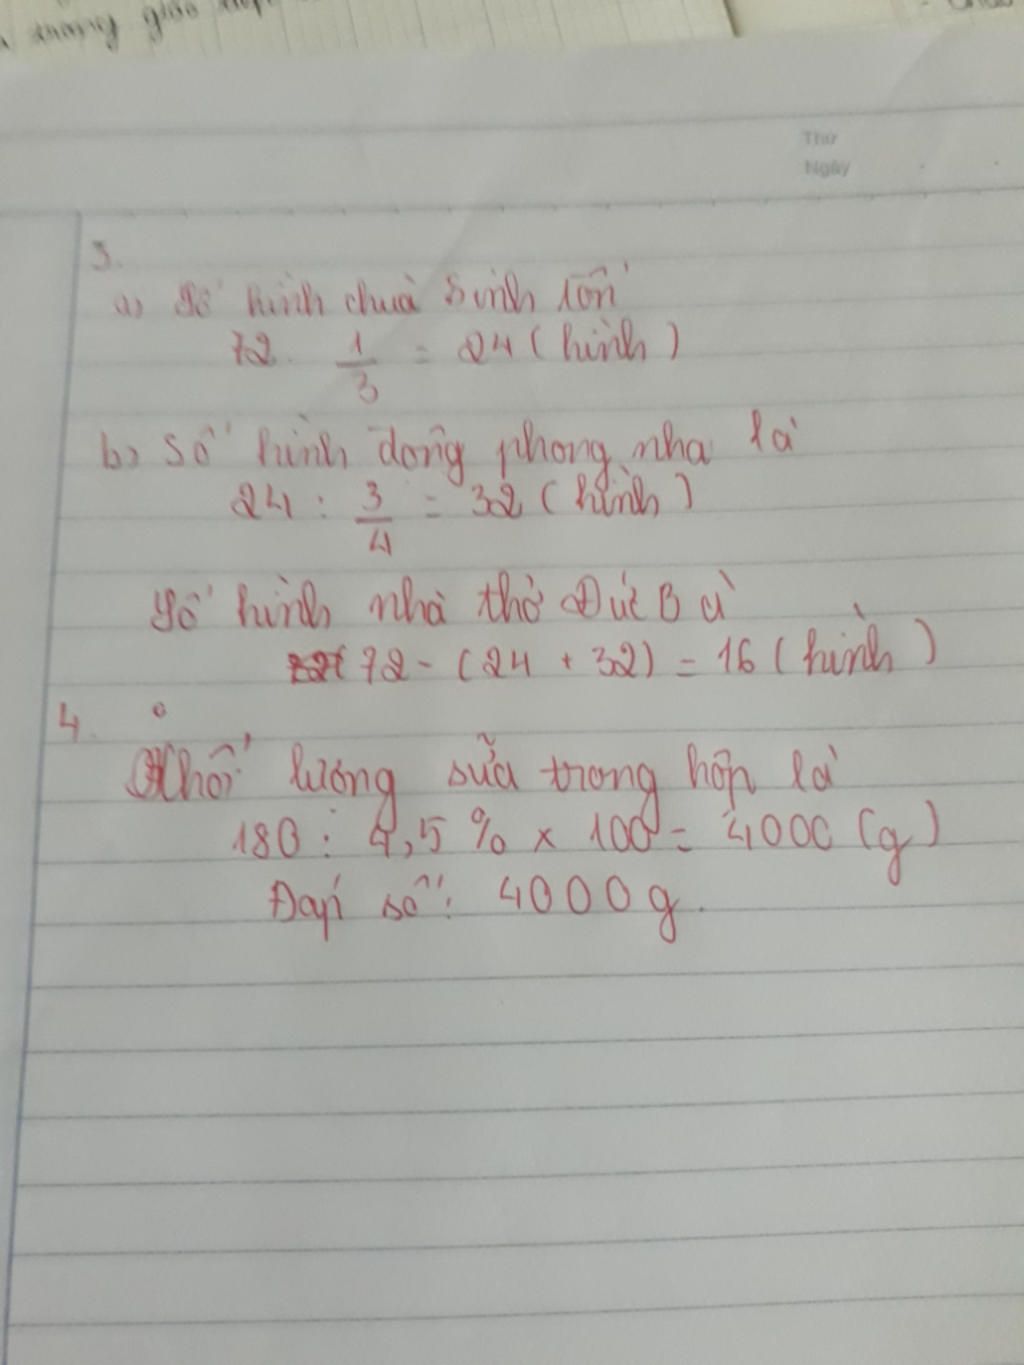 Thứ
Ngày
3.
a) Số hình chưà Sinh tồn
72. 1/3 = 24 (hình)
b) Số hình động phong nha là
24 : 3/4 = 32 (hình)
Số hình nhà thờ Đức Bà
72 - (24 + 32) = 16 (hình)
4.
Khối lượng sữa trong hộp là
180 : 4,5% x 100 = 4000 (g)
Đáp số: 4000g.